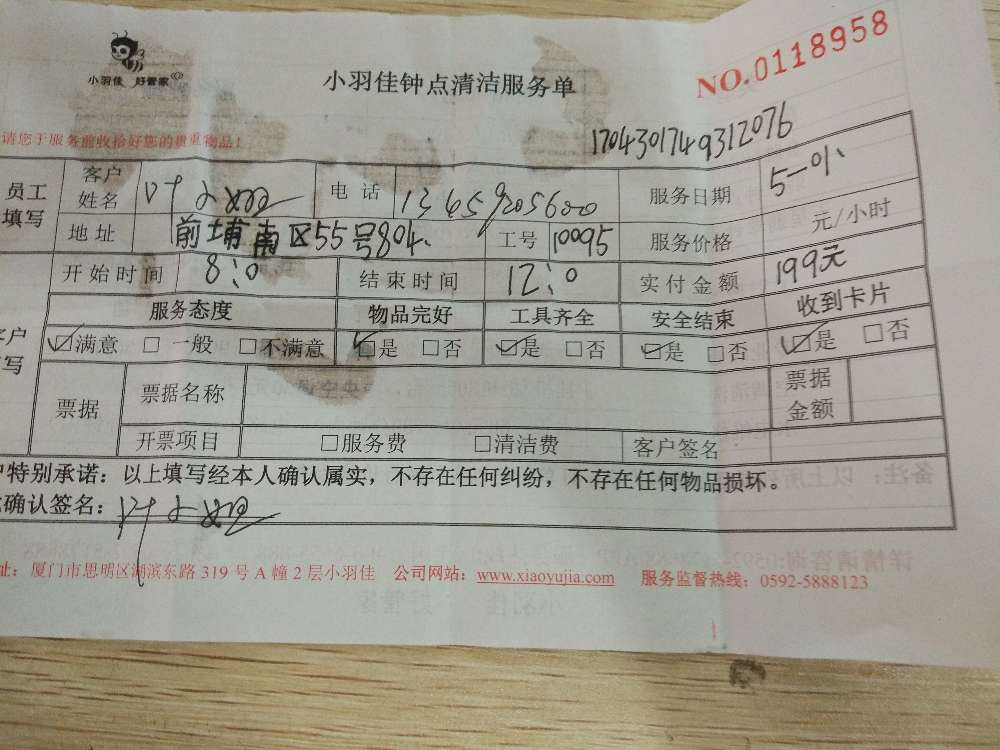 小羽佳 好管家
小羽佳钟点清洁服务单
NO.0118958
请您于服务前收拾好您的贵重物品！
1704301749312076
员工填写 客户姓名 叶大姐 电话 13459205600 服务日期 5-01
地址 前埔南区55号804 工号 10095 服务价格 元/小时
开始时间 8:0 结束时间 12:0 实付金额 199元
服务态度 物品完好 工具齐全 安全结束 收到卡片
☑满意 □一般 □不满意 ☑是 □否 ☑是 □否 ☑是 □否 ☑是 □否
票据 票据名称 票据金额
开票项目 □服务费 □清洁费 客户签名
特别承诺：以上填写经本人确认属实，不存在任何纠纷，不存在任何物品损坏。
确认签名：叶大姐
址：厦门市思明区湖滨东路 319 号 A 幢 2 层小羽佳 公司网站：www.xiaoyujia.com 服务监督热线：0592-5888123